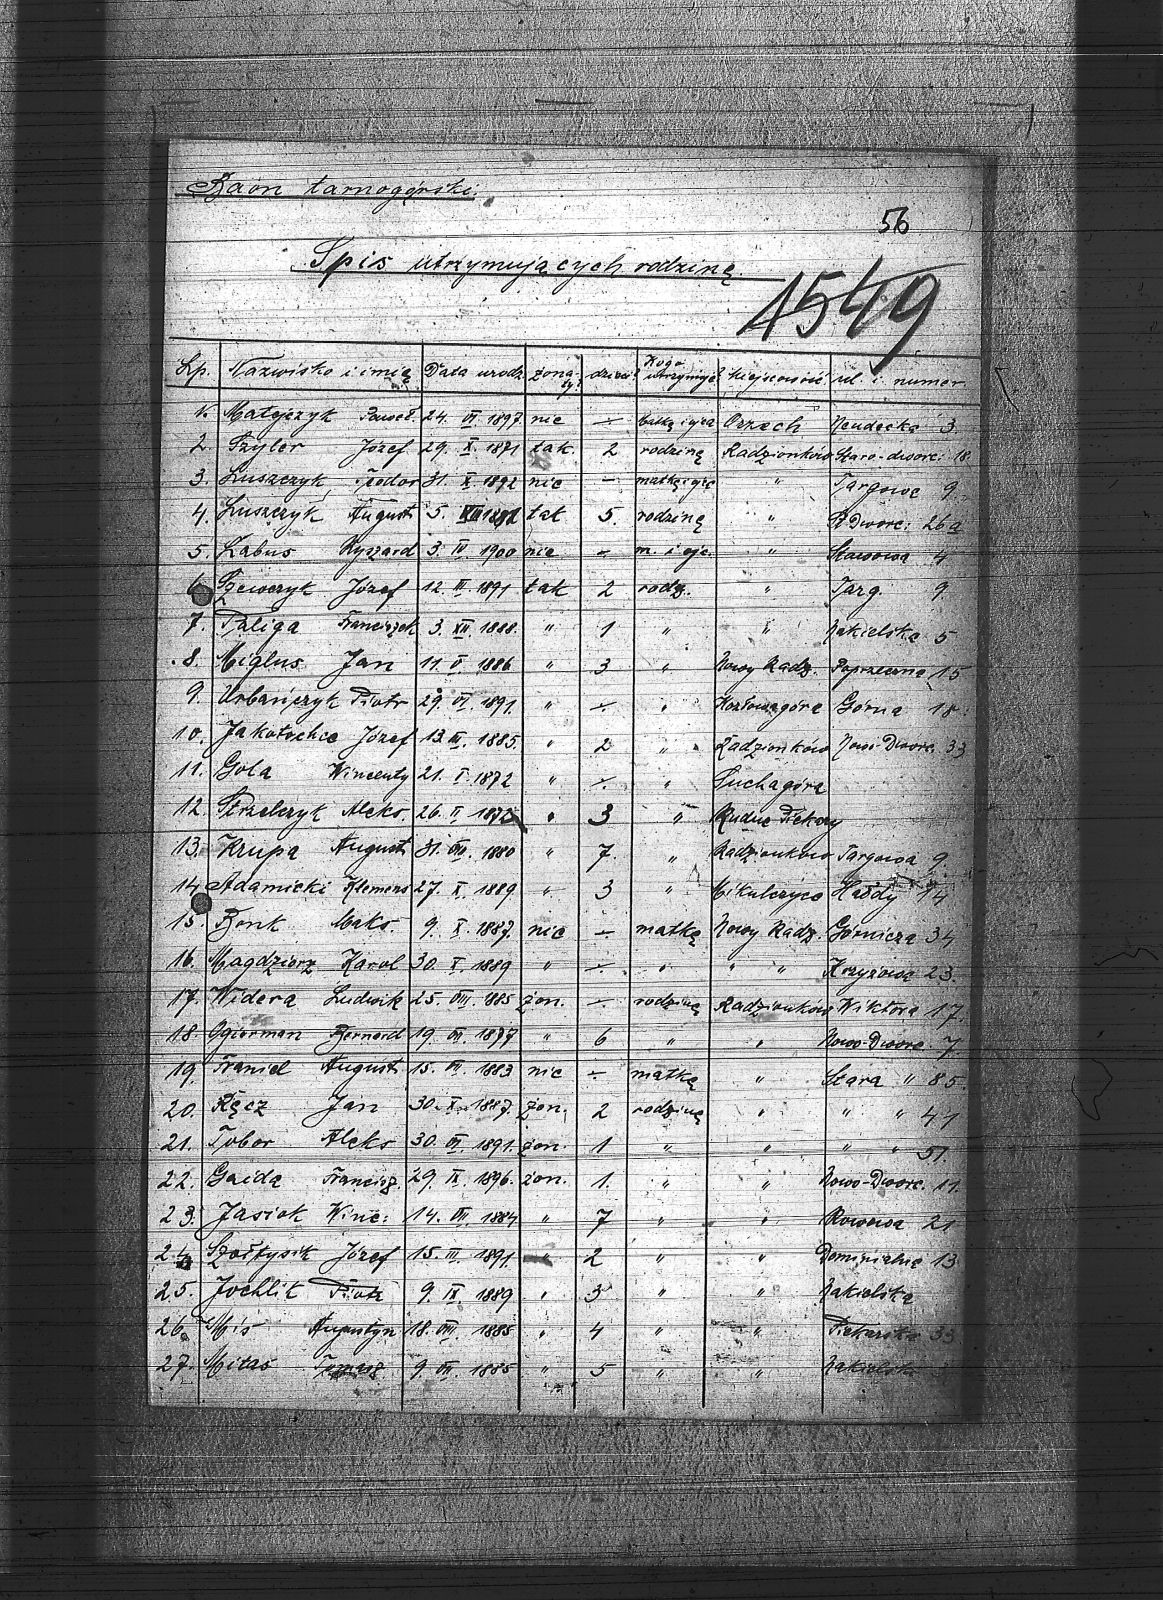 Baon tarnogórski.
56
Spis utrzymujących rodzinę
1549
Lp. Nazwisko i imię Data urodz. żona-ty? dzieci? Kogo utrzymyje? Miejscowość ul. i numer
1. Matejczyk Paweł. 24. VI. 1897. nie — matkę i ojca Orzech Neudecka 3
2. Szyler Józef 29. X. 1871 tak. 2 rodzinę Radzionków Staro-dworc: 18.
3. Łuszczyk Teodor 31. X. 1892 nie — matkę i ojc " Targowe 9.
4. Łuszczyk August 5. tak 5. rodzinę " St. Dworc: 26a
5. Labus Ryszard 3. IV 1900 nie — m. i ojc. " Stawowa 4
6. Szewczyk Józef 12. III. 1891 tak 2 rodz. " Targ. 9.
7. Franciszek 3. XII. 1888. " 1 " " Nakielska 5
8. Miglus Jan 11. V 1886 " 3 " Nowy Radz. Poprzeczna 15
9. Urbańczyk Piotr 29. VI. 1891. " — " Kozłowagóra Górna 18
10. Józef 13. III. 1885. " 2 " Radzionków Nowo Dworc. 33
11. Gola Wincenty 21. I. 1872 " — " Suchagóra
12. Strzelczyk Aleks. 26. II. " 3 " Rudne Piekary
13. Krupa August 31. VIII. 1880 " 7. " Radzionków Targowa 9.
14. Adamicki Klemens 27. X. 1889 " 3 " Mikulczyce Hałdy 14
15. Bonk Maks. 9. X. 1887. nie — matkę Nowy Radz. Górnicza 34
16. Magdziorz Karol 30. X. 1889 " — " " " Krzyżowa 23.
17. Widera Ludwik 25. VIII. 1885 żon. — rodzinę Radzionków Wiktora 17.
18. Ogierman Bernard 19. VII. 1877 " 6 " " Nowo-Dworc. 7.
19. Franiel August 15. VII. 1883 nie — matkę " Stara " 85.
20. Ręcz Jan 30. X. 1887. żon. 2 rodzinę " " " 41
21. Tobor Aleks 30. VI. 1891. żon. 1 " " " " 51.
22. Gaida Francisz. 29. IX. 1896. żon. 1. " " Nowo-Dworc. 11.
23. Jasiok Winc: 14. VII. 1884. " 7 " " Rowowa 21
24. Szołtysik Józef 15. III. 1891. " 2 " " Dominialna 13
25. Jochlik Piotr 9. IX. 1889 " 3 " " Nakielska
26. Miś Augustyn 18. VIII. 1885 " 4 " " Piekarska 33
27. Mitas Tomasz 9. VII. 1885 " 5 " " Nakielska